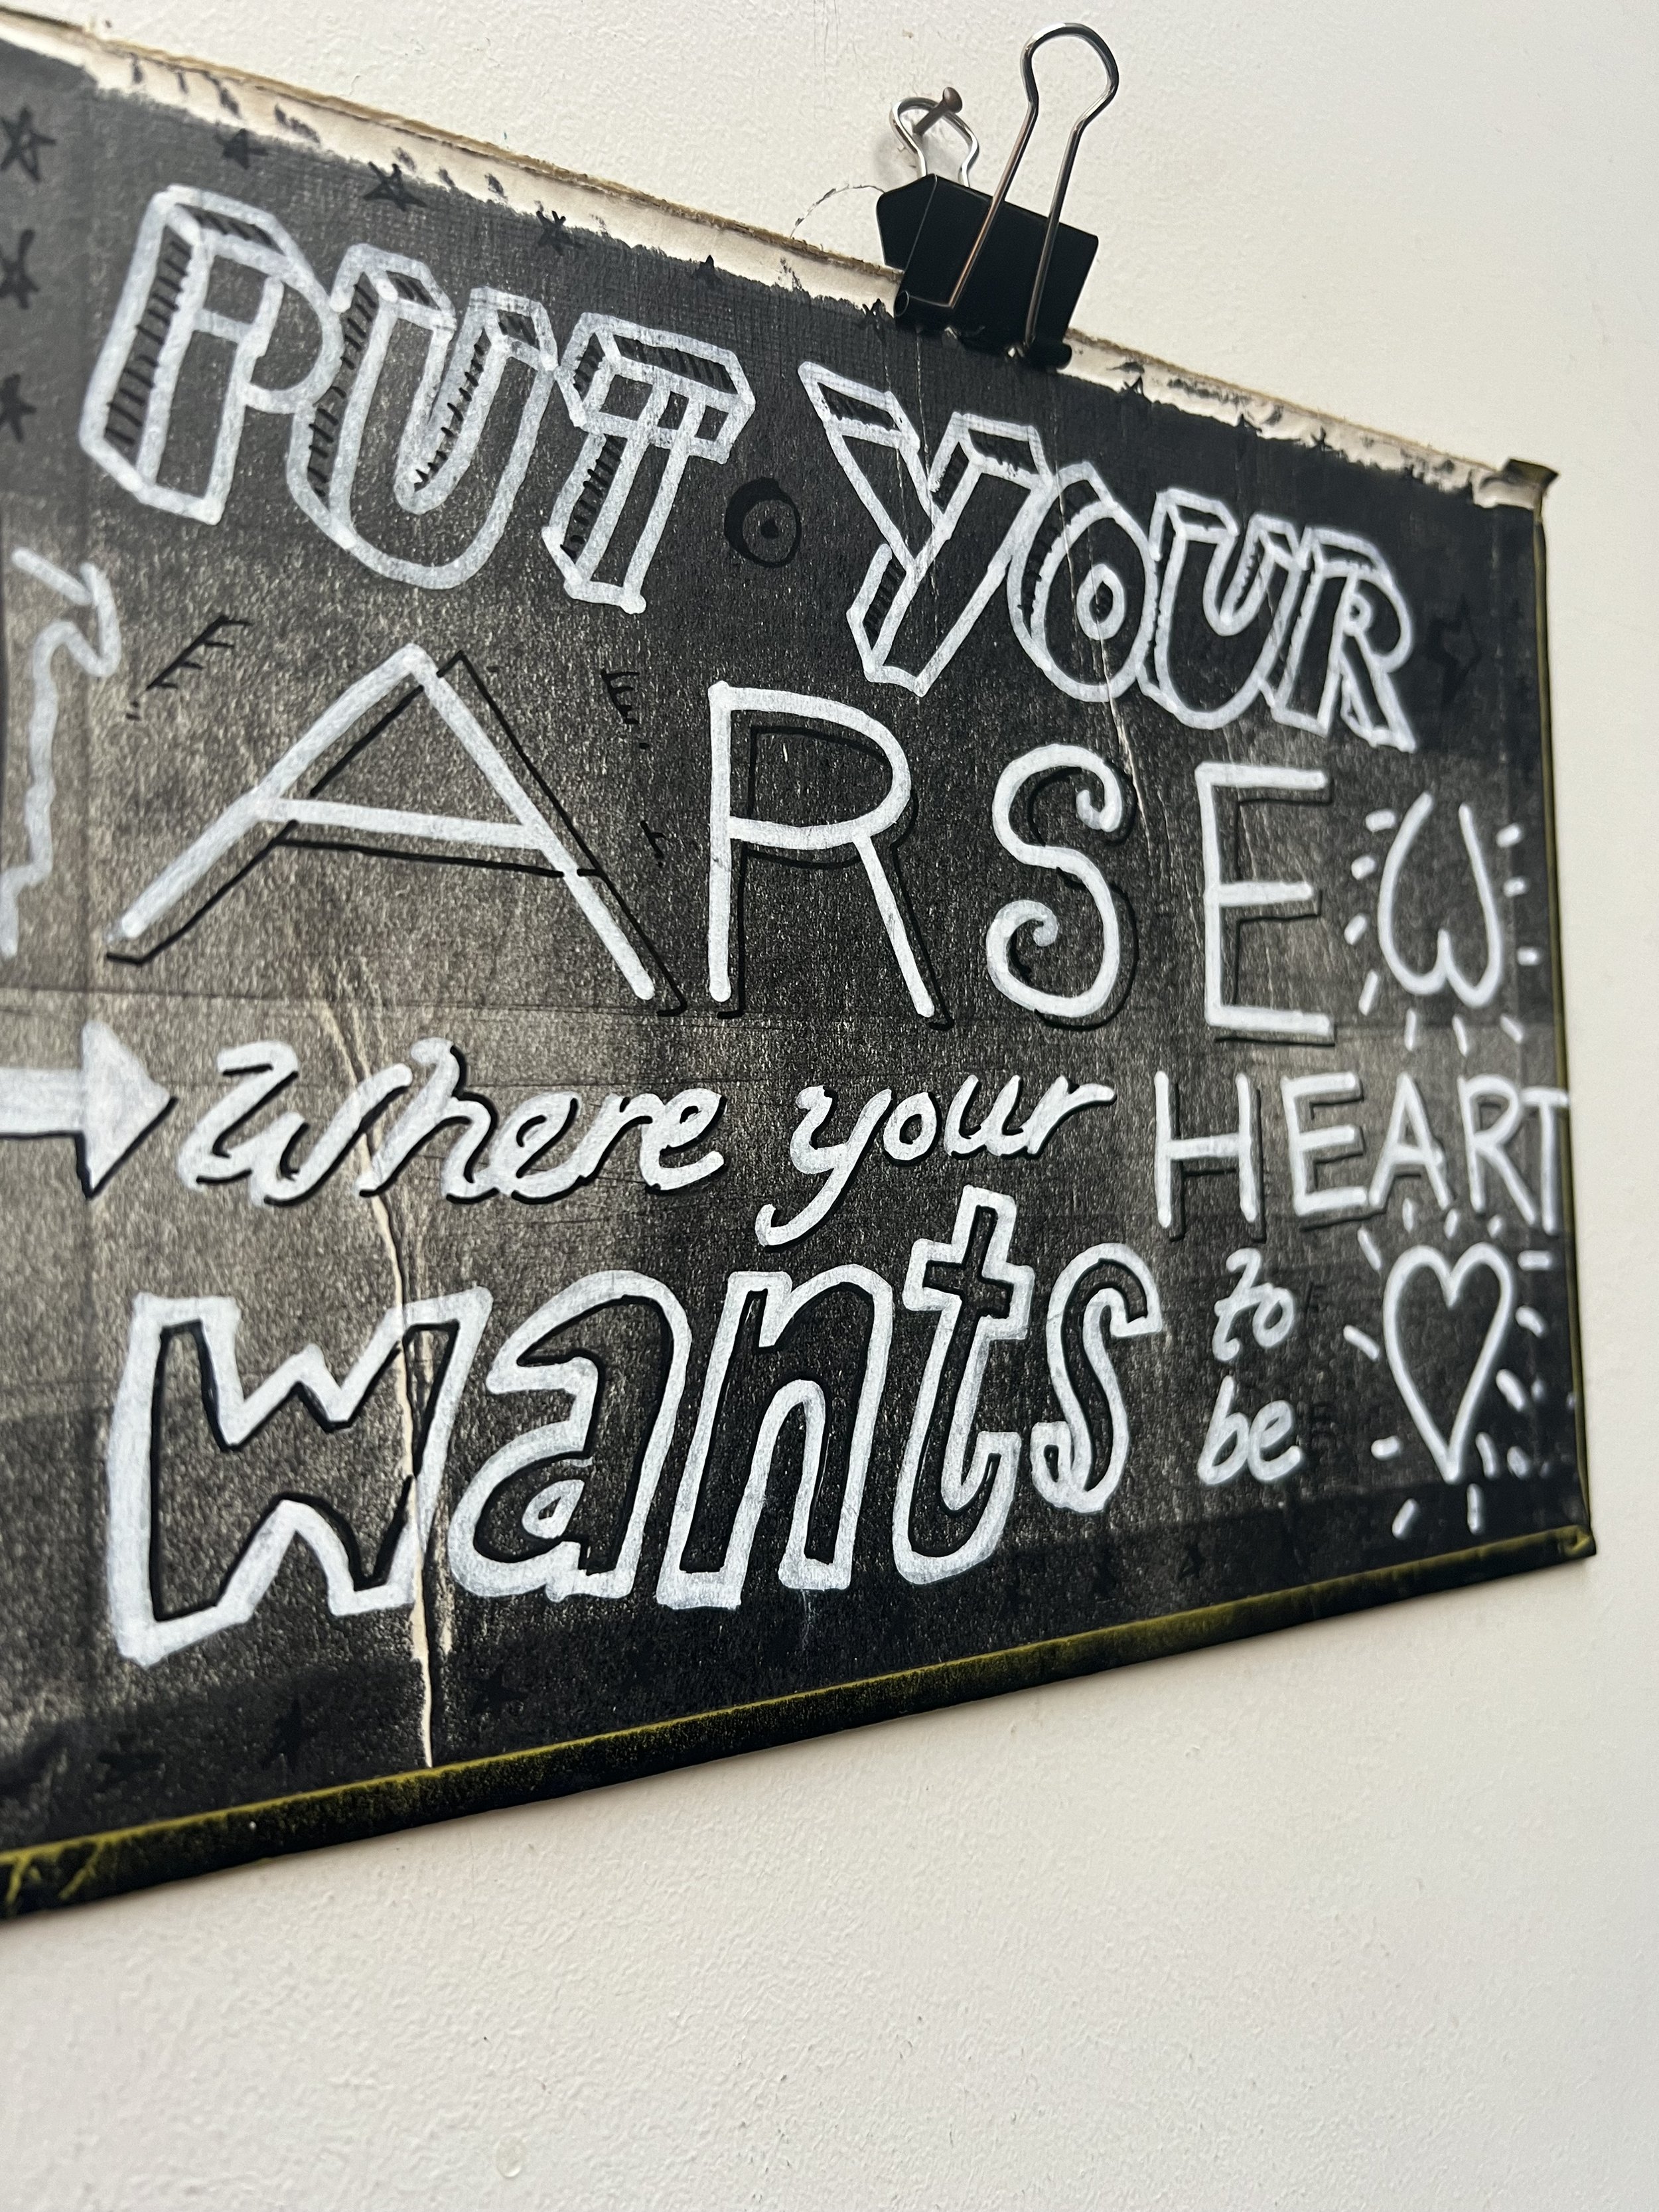 PUT YOUR
ARSE
where your HEART
wants to
be